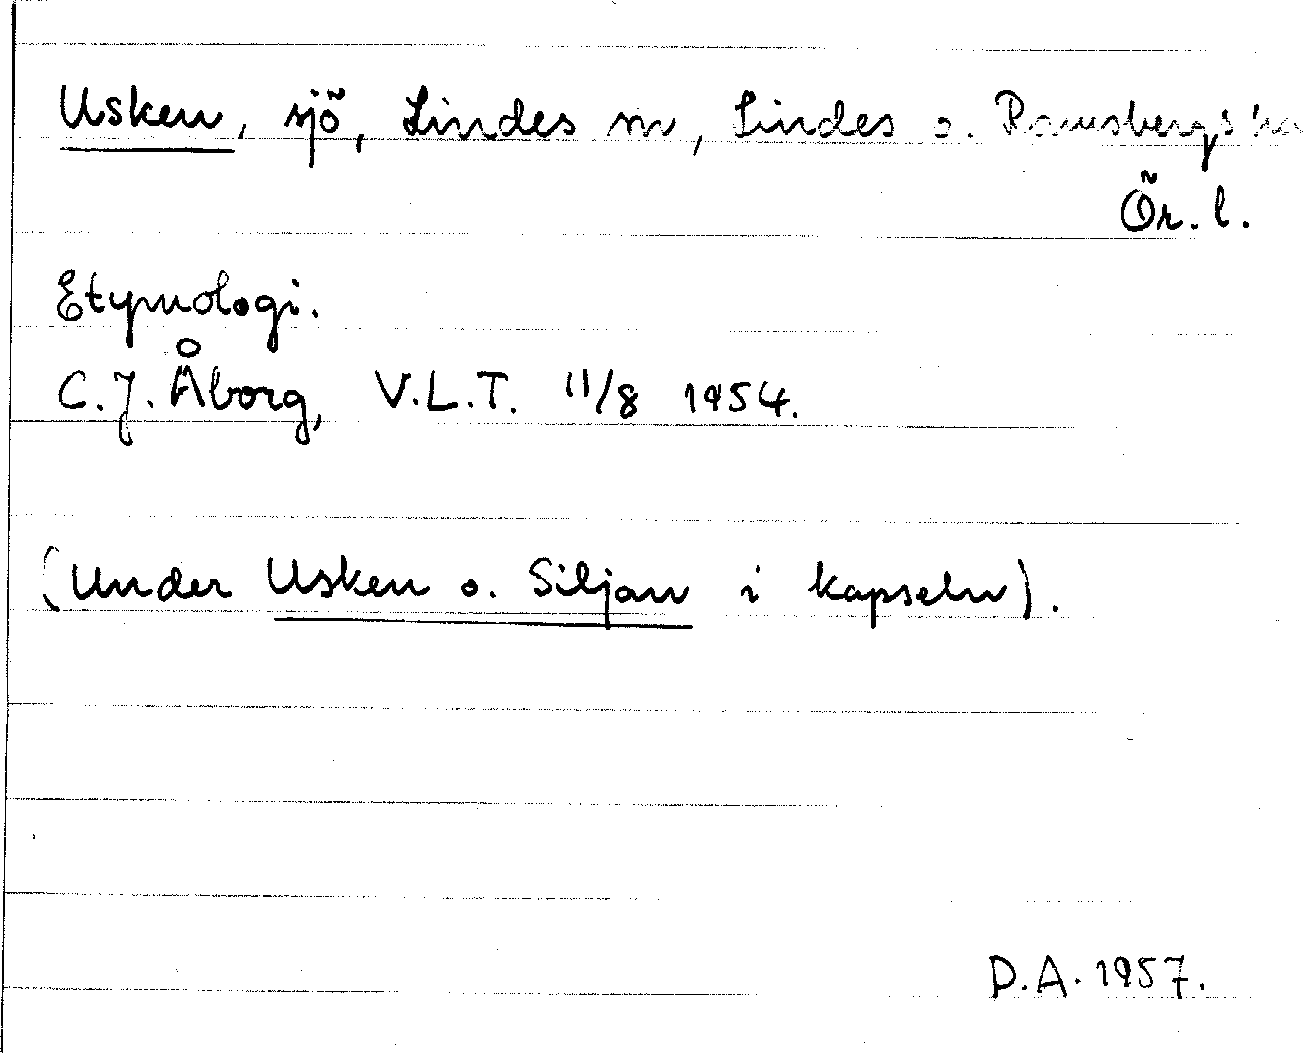 Usken, sjö, Lindes sn, Lindes o. Ramsbergs
Ör. l.
Etymologi.
C.J. Åborg, V.L.T. 11/8 1954.
(Under Usken o. Siljan i kapseln).
D.A. 1957.